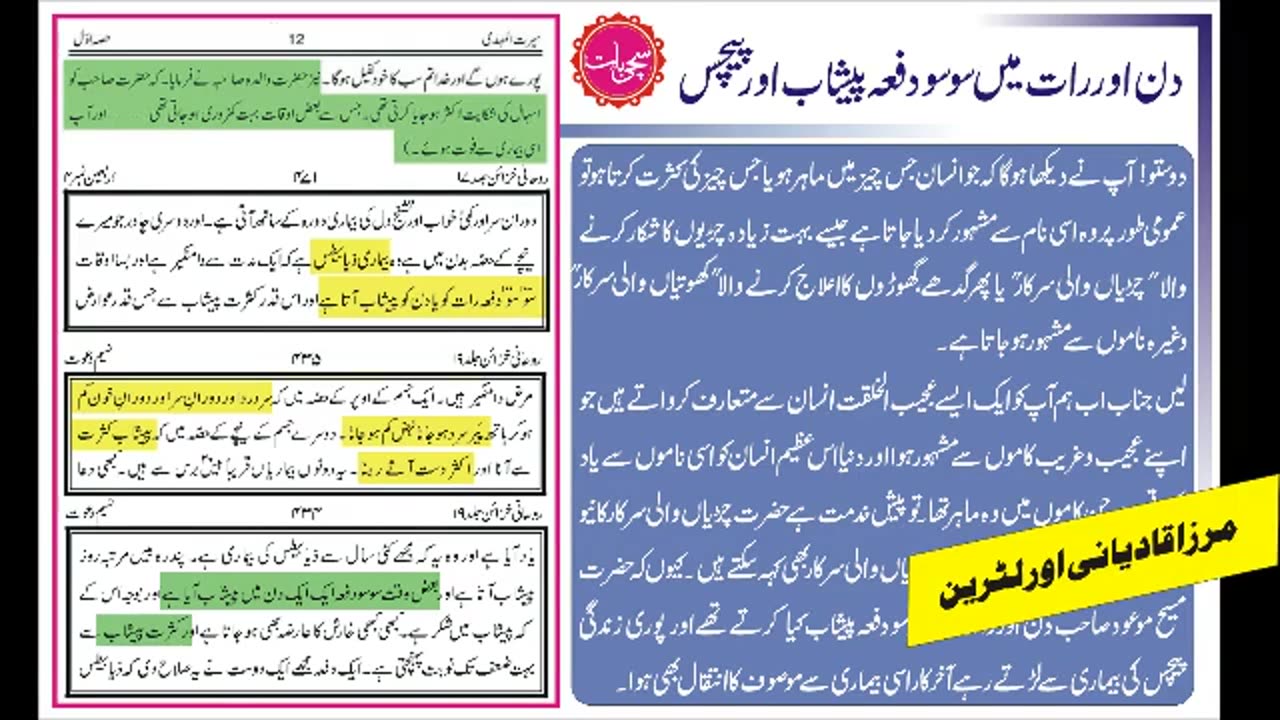 دن اور رات میں سوسو دفعہ پیشاب اور پیچس
سچی بات
دوستو! آپ نے دیکھا ہوگا کہ جو انسان جس چیز میں ماہر ہو یا جس چیز کی کثرت کرتا ہو تو
عمومی طور پر وہ اسی نام سے مشہور کر دیا جاتا ہے جیسے بہت زیادہ چڑیوں کا شکار کرنے
والا "چڑیاں والی سرکار" یا پھر گدھے گھوڑوں کا علاج کرنے والا "کھوتیاں والی سرکار"
وغیرہ ناموں سے مشہور ہو جاتا ہے۔
لیں جناب اب ہم آپ کو ایک ایسے عجیب الخلقت انسان سے متعارف کرواتے ہیں جو
اپنے عجیب و غریب کاموں سے مشہور ہوا اور دنیا اس عظیم انسان کو اسی ناموں سے یاد
جن کاموں میں وہ ماہر تھا۔ تو پیش خدمت ہے حضرت چڑیاں والی سرکار کا نیو
یاں والی سرکار بھی کہہ سکتے ہیں۔ کیوں کہ حضرت
مسیح موعود صاحب دن اور سودفعہ پیشاب کیا کرتے تھے اور پوری زندگی
پیچس کی بیماری سے لڑتے رہے آخر کار اسی بیماری سے موصوف کا انتقال بھی ہوا۔
مرزا قادیانی اور لٹرین
سیرت المہدی 12 حصہ اوّل
پورے ہوں گے اور خدا تم سب کا خود کفیل ہوگا۔ نیز حضرت والدہ صاحبہ نے فرمایا۔ کہ حضرت صاحب کو
اسہال کی شکایت اکثر ہو جایا کرتی تھی۔ جس سے بعض اوقات بہت کمزوری ہو جاتی تھی ...... اور آپ
اسی بیماری سے فوت ہوئے۔)
روحانی خزائن جلد ۱۷ ۴۷۱ اربعین نمبر ۴
دوران سر اور کمی خواب اور تشنج دل کی بیماری دورہ کے ساتھ آتی ہے۔ اور دوسری چادر جو میرے
نیچے کے حصہ بدن میں ہے وہ بیماری ذیابیطس ہے کہ ایک مدت سے دامنگیر ہے اور بسا اوقات
سو سو دفعہ رات کو یا دن کو پیشاب آتا ہے اور اس قدر کثرت پیشاب سے جس قدر عوارض
روحانی خزائن جلد ۱۹ ۴۳۵ نسیم دعوت
مرض دامنگیر ہیں۔ ایک جسم کے اوپر کے حصہ میں کہ سر درد اور دوران سر اور دوران خون کم
ہو کر ہاتھ پیر سرد ہو جانا نبض کم ہو جانا۔ دوسرے جسم کے نیچے کے حصہ میں کہ پیشاب کثرت
سے آنا اور اکثر دست آتے رہنا۔ یہ دونوں بیماریاں قریباً بیس برس سے ہیں۔ کبھی دعا
روحانی خزائن جلد ۱۹ ۴۳۴ نسیم دعوت
یاد آیا ہے اور وہ یہ کہ مجھے کئی سال سے ذیابیطس کی بیماری ہے۔ پندرہ بیس مرتبہ روز
پیشاب آتا ہے اور بعض وقت سو سو دفعہ ایک ایک دن میں پیشاب آیا ہے اور بوجہ اس کے
کہ پیشاب میں شکر ہے۔ کبھی کبھی خارش کا عارضہ بھی ہو جاتا ہے اور کثرت پیشاب سے
بہت ضعف تک نوبت پہنچتی ہے۔ ایک دفعہ مجھے ایک دوست نے یہ صلاح دی کہ ذیابیطس